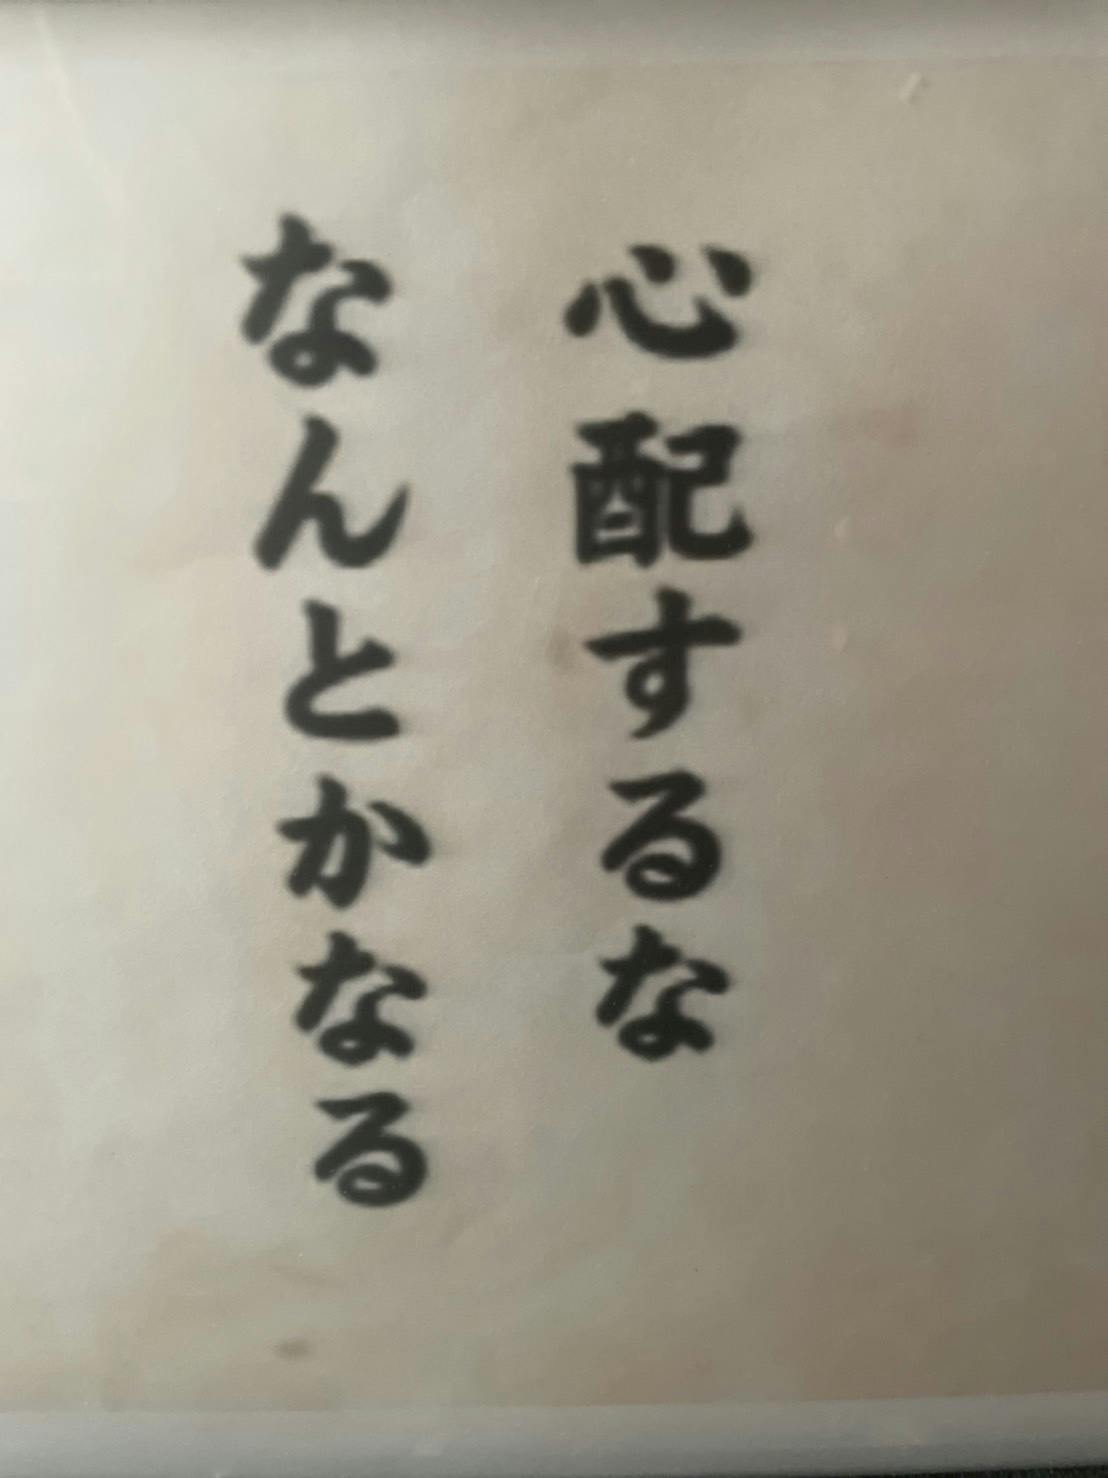 心配するな
なんとかなる